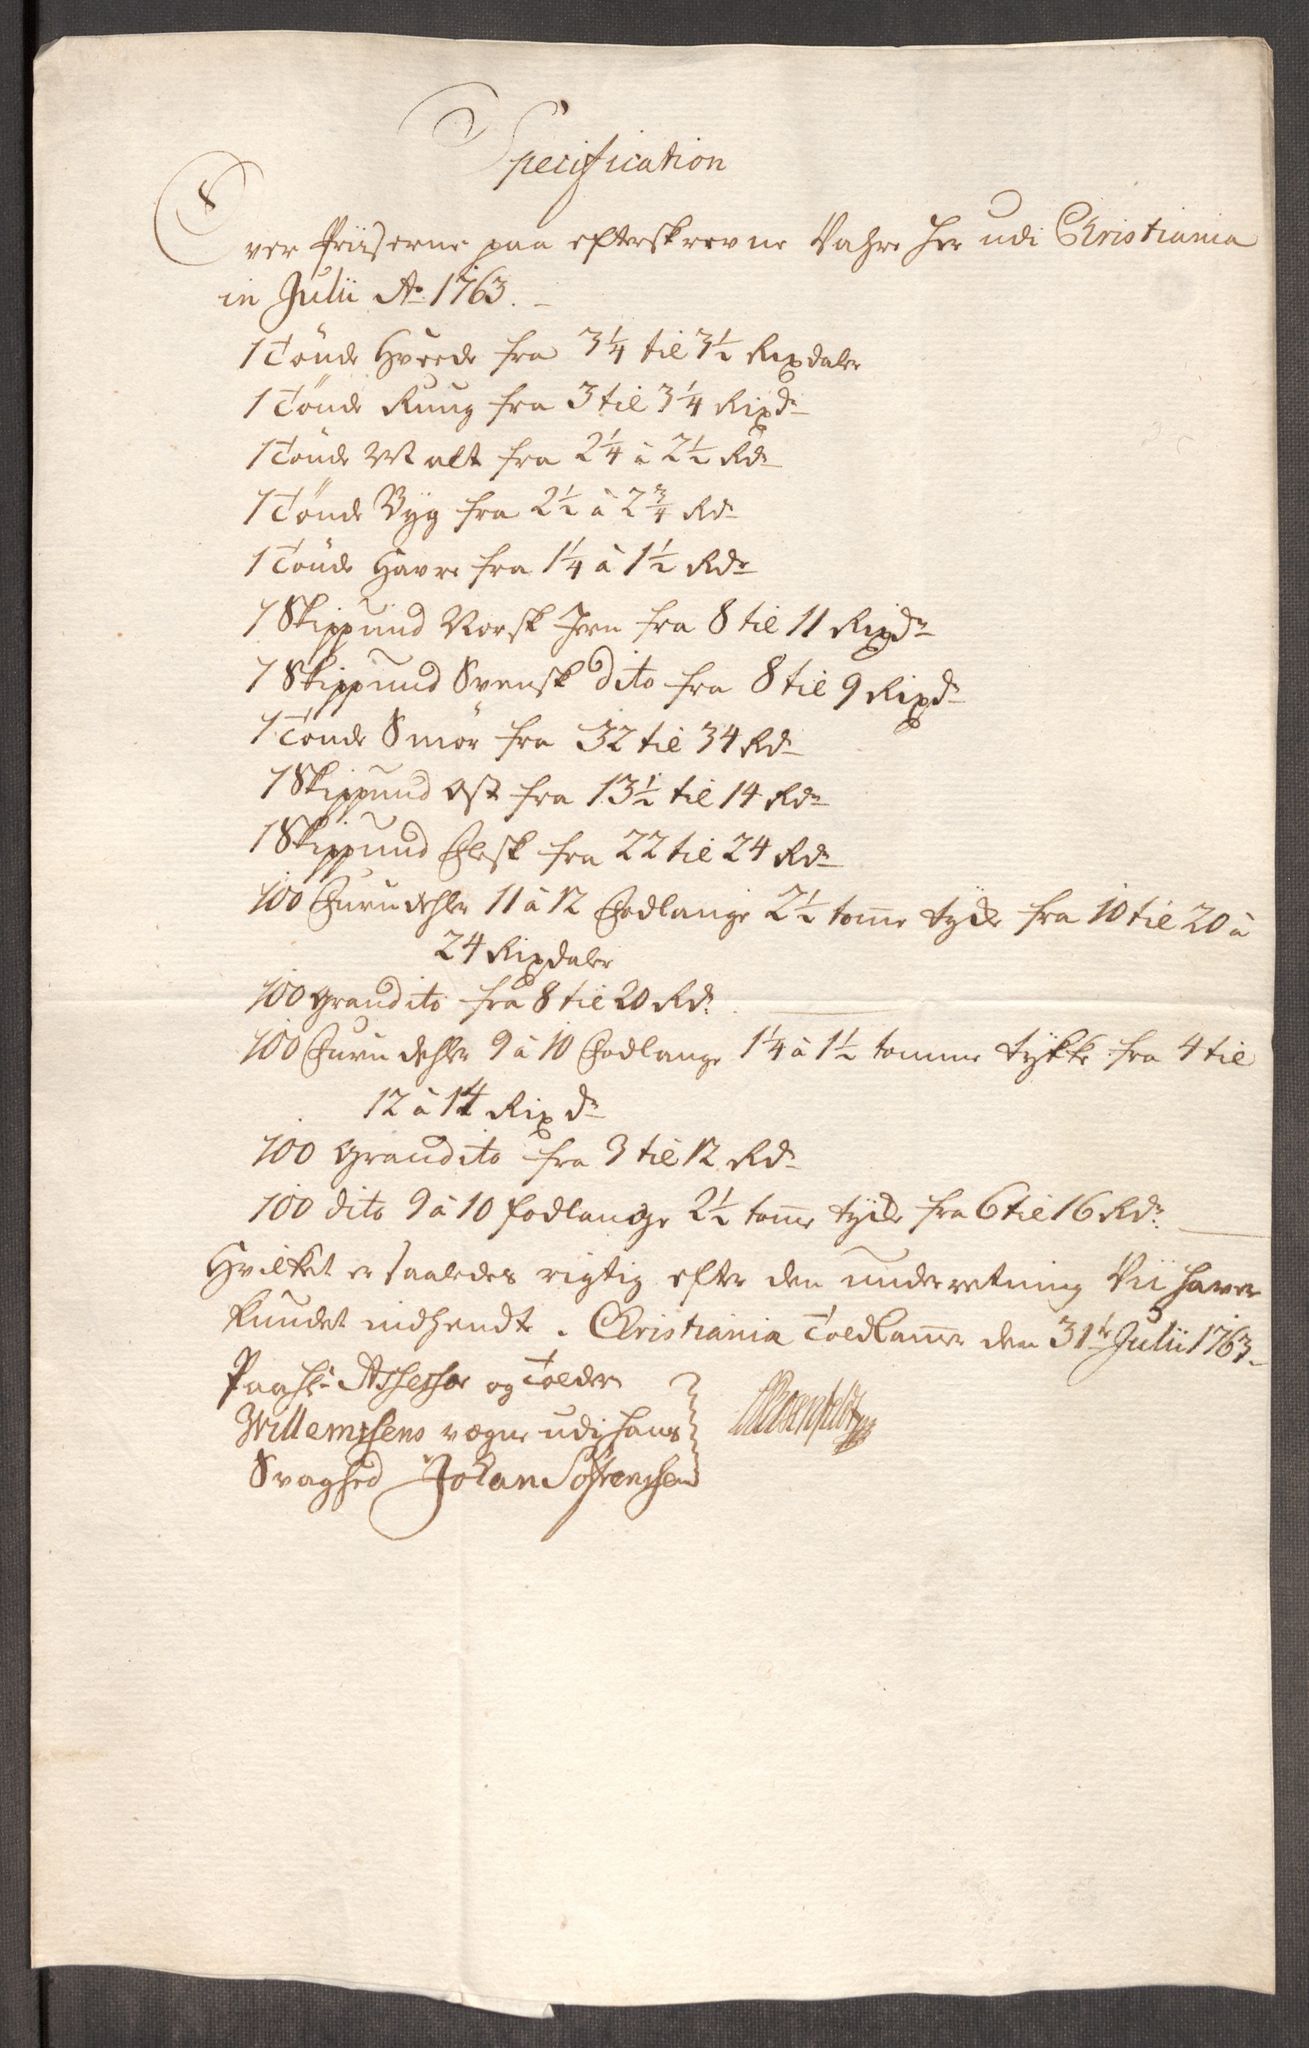 Specification
Over Priiserne paa efterskrevne Vahre her udi Christiania
in Julii Ao 1763.
1 Tönde Hveede fra 3 1/4 til 3 1/2 Rixdaler
1 Tönde Ruug fra 3 til 3 1/4 Rixdr
1 Tönde Malt fra 2 1/4 à 2 1/2 Rdr
1 Tönde Byg fra 2 1/2 à 2 3/4 Rdr
1 Tönde Havre fra 1 1/4 à 1 1/2 Rdr
1 Skippund Norsk Jern fra 8 til 11 Rixdr
1 Skippund Svensk dito fra 8 til 9 Rixdr
1 Tönde Smör fra 32 til 34 Rdr
1 Skippund Ost fra 13 1/2 til 14 Rdr
1 Skippund Flesk fra 22 til 24 Rdr
100 Furudehler 11 à 12 Fodlange 2 1/2 tomme tyde fra 10 til 20 à
24 Rixdaler
100 Grandito fra 8 til 20 Rdr.
100 Furu dehler 9 à 10 Fodlange 1 1/4 à 1 1/2 tomme tykke fra 4 til
12 à 14 Rixdr
100 Grandito fra 3 til 12 Rdr
100 dito 9 à 10 fodlange 2 1/2 tomme tyde fra 6 til 16 Rdr.
Hvilket er saaledes rigtig efter den underretning Vii haver
kundet indhendte. Christiania Toldkammer den 31te Julii 1763.
Paa Hr Assessor og Tolder
Willemsens vegne udj hans
Svaghed Johan Sörensen